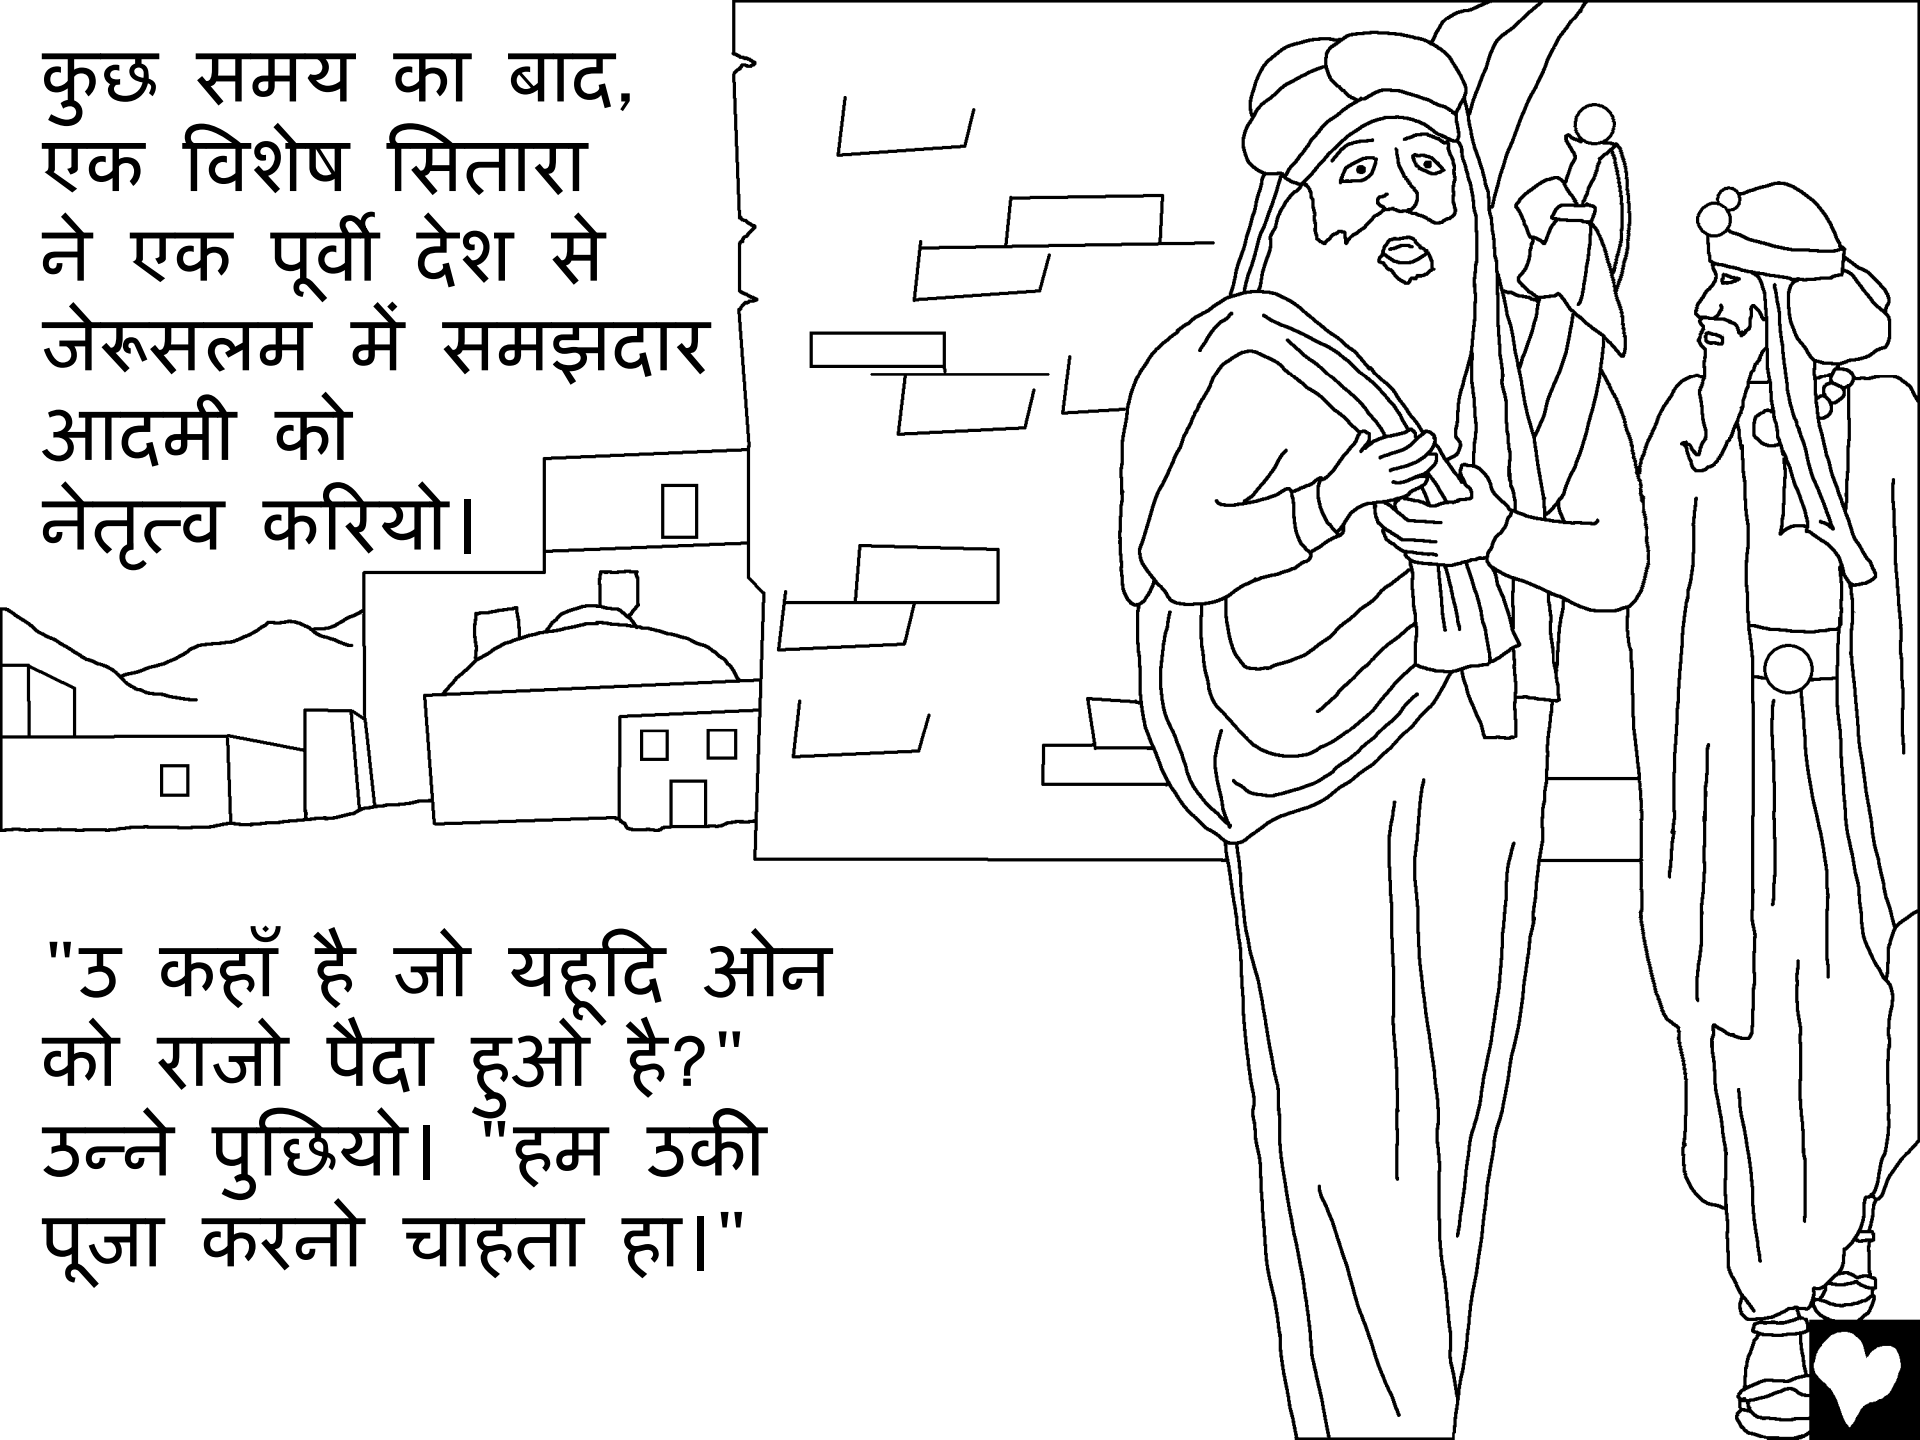 कुछ समय का बाद,
एक विशेष सितारा
ने एक पूर्वी देश से
जेरूसलम में समझदार
आदमी को
नेतृत्व करियो।
"उ कहाँ है जो यहूदि ओन
को राजो पैदा हुओ है?"
उन्ने पुछियो। "हम उकी
पूजा करनो चाहता हा।"